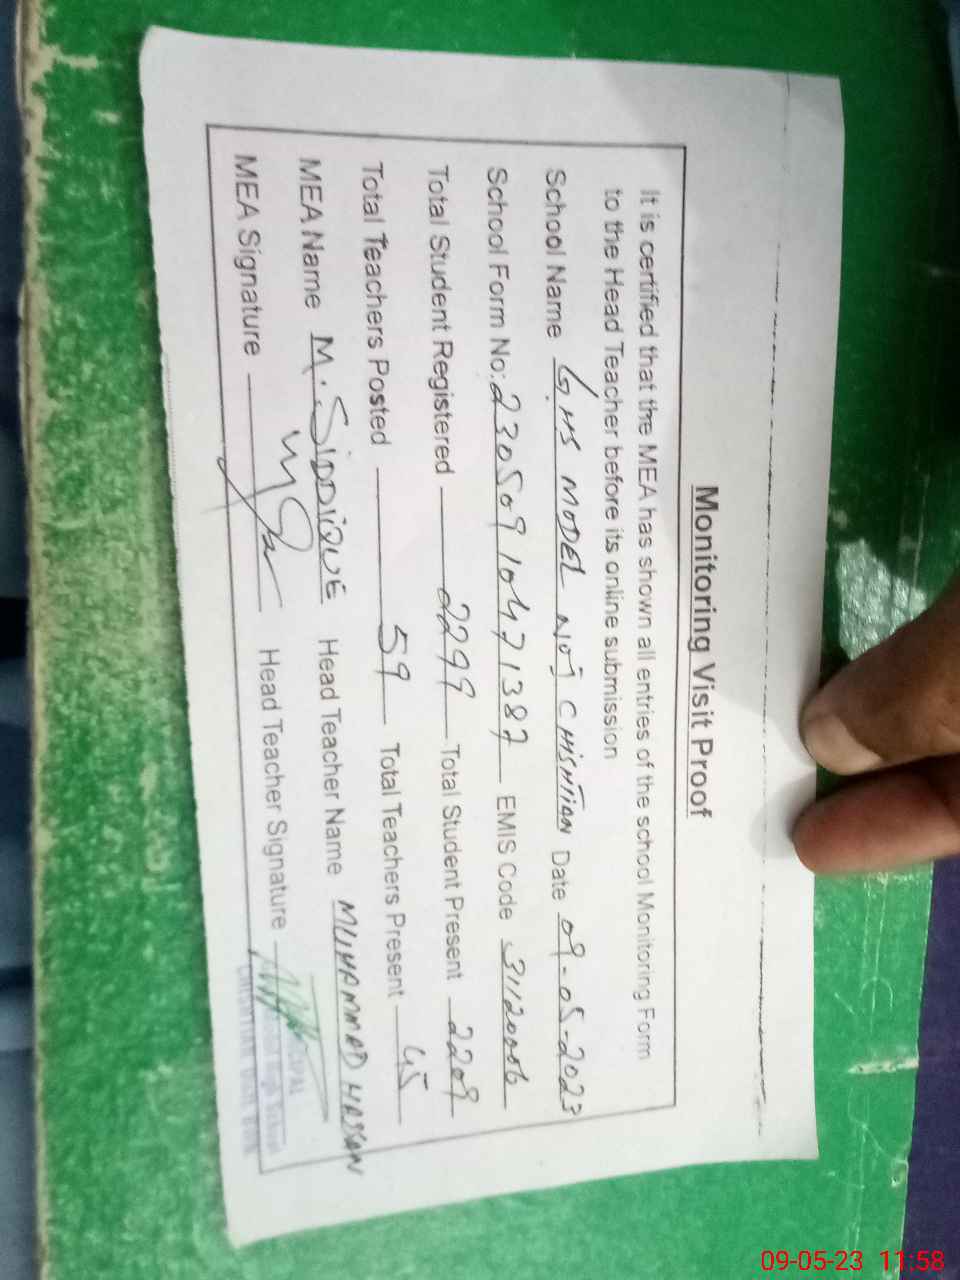 Monitoring Visit Proof
It is certified that the MEA has shown all entries of the school Monitoring Form
to the Head Teacher before its online submission
School Name G.HS MODEL NO1 CHISHTIAN Date 09-05-2023
School Form No: 230509 10471387 EMIS Code 31120006
Total Student Registered 2299 Total Student Present 2209
Total Teachers Posted 59 Total Teachers Present 45
MEA Name M. SIDDIQUE Head Teacher Name MUHAMMAD HASSAN
MEA Signature Head Teacher Signature
High School
09-05-23 11:58